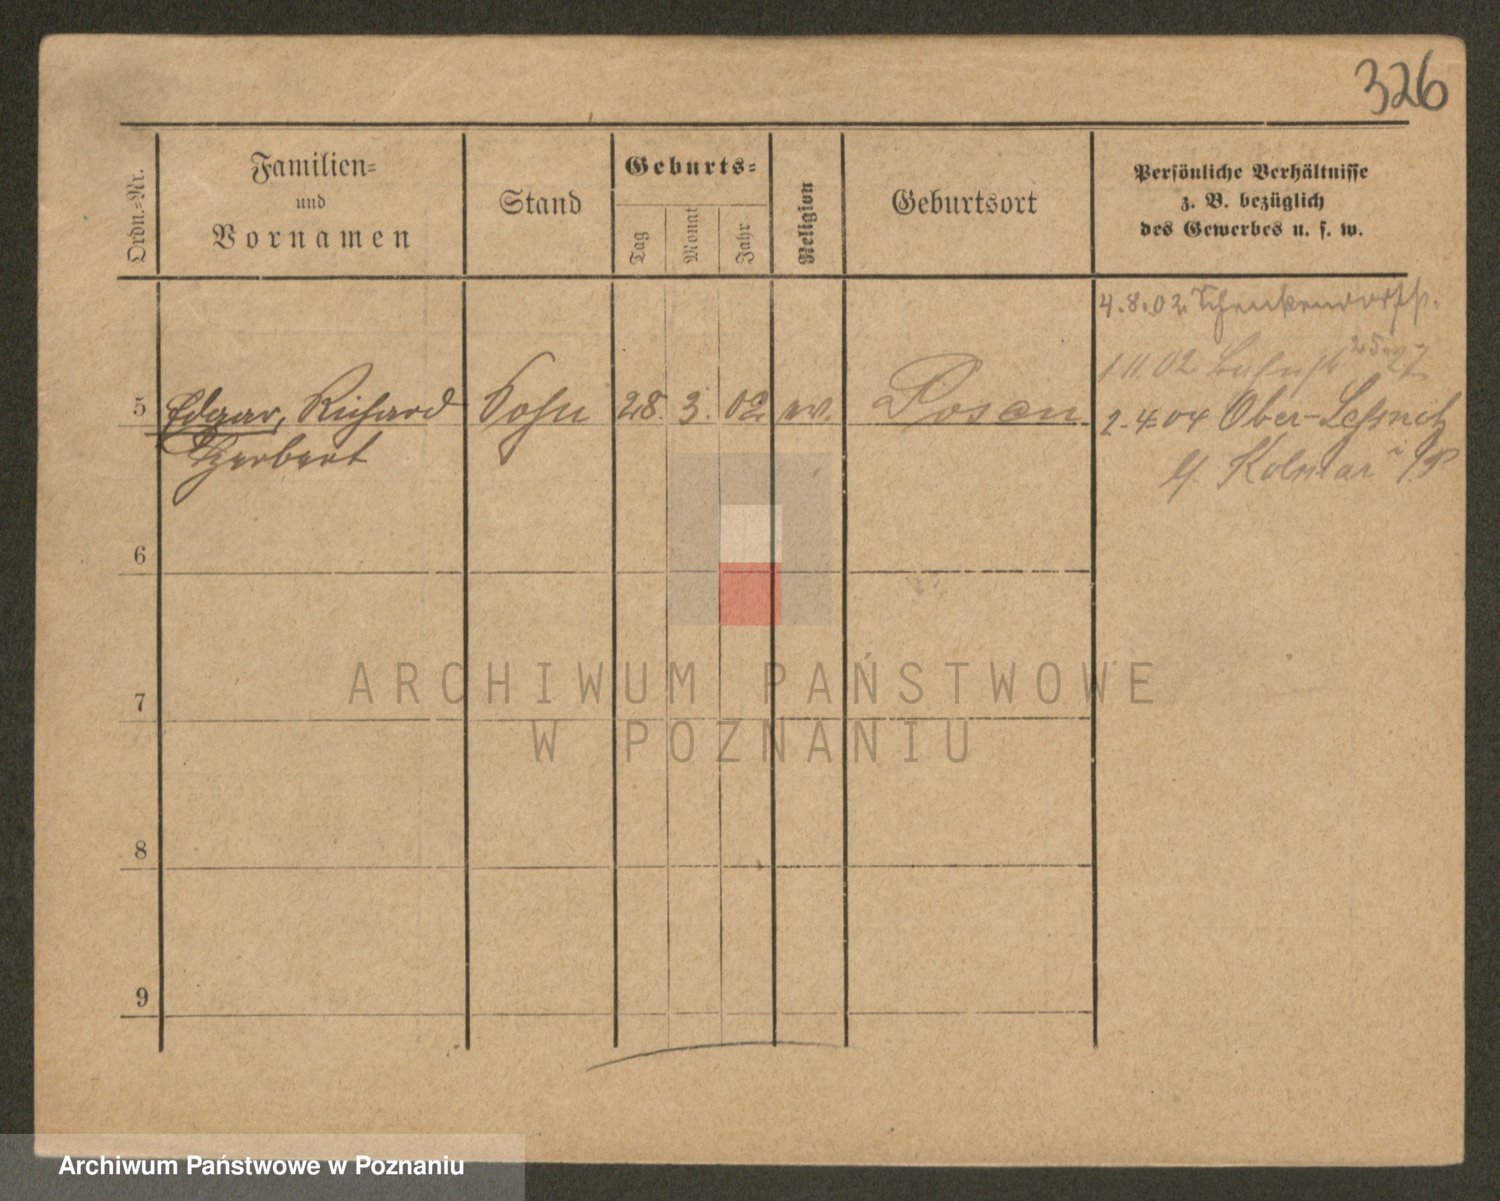 326
Ordn.-Nr.
Familien-
und
Vornamen
Stand
Geburts-
Tag
Monat
Jahr
Religion
Geburtsort
Persönliche Verhältnisse
z. B. bezüglich
des Gewerbes u. s. w.
4.8.02. Schenkendorfstr.
1.11.02
5 Edgar, Richard Sohn 28. 3. 02 ev. Posen
Herbert
2.4.04 Ober-Lesnitz
Kolmar i/P
6
7
8
9
ARCHIWUM PAŃSTWOWE
W POZNANIU
Archiwum Państwowe w Poznaniu